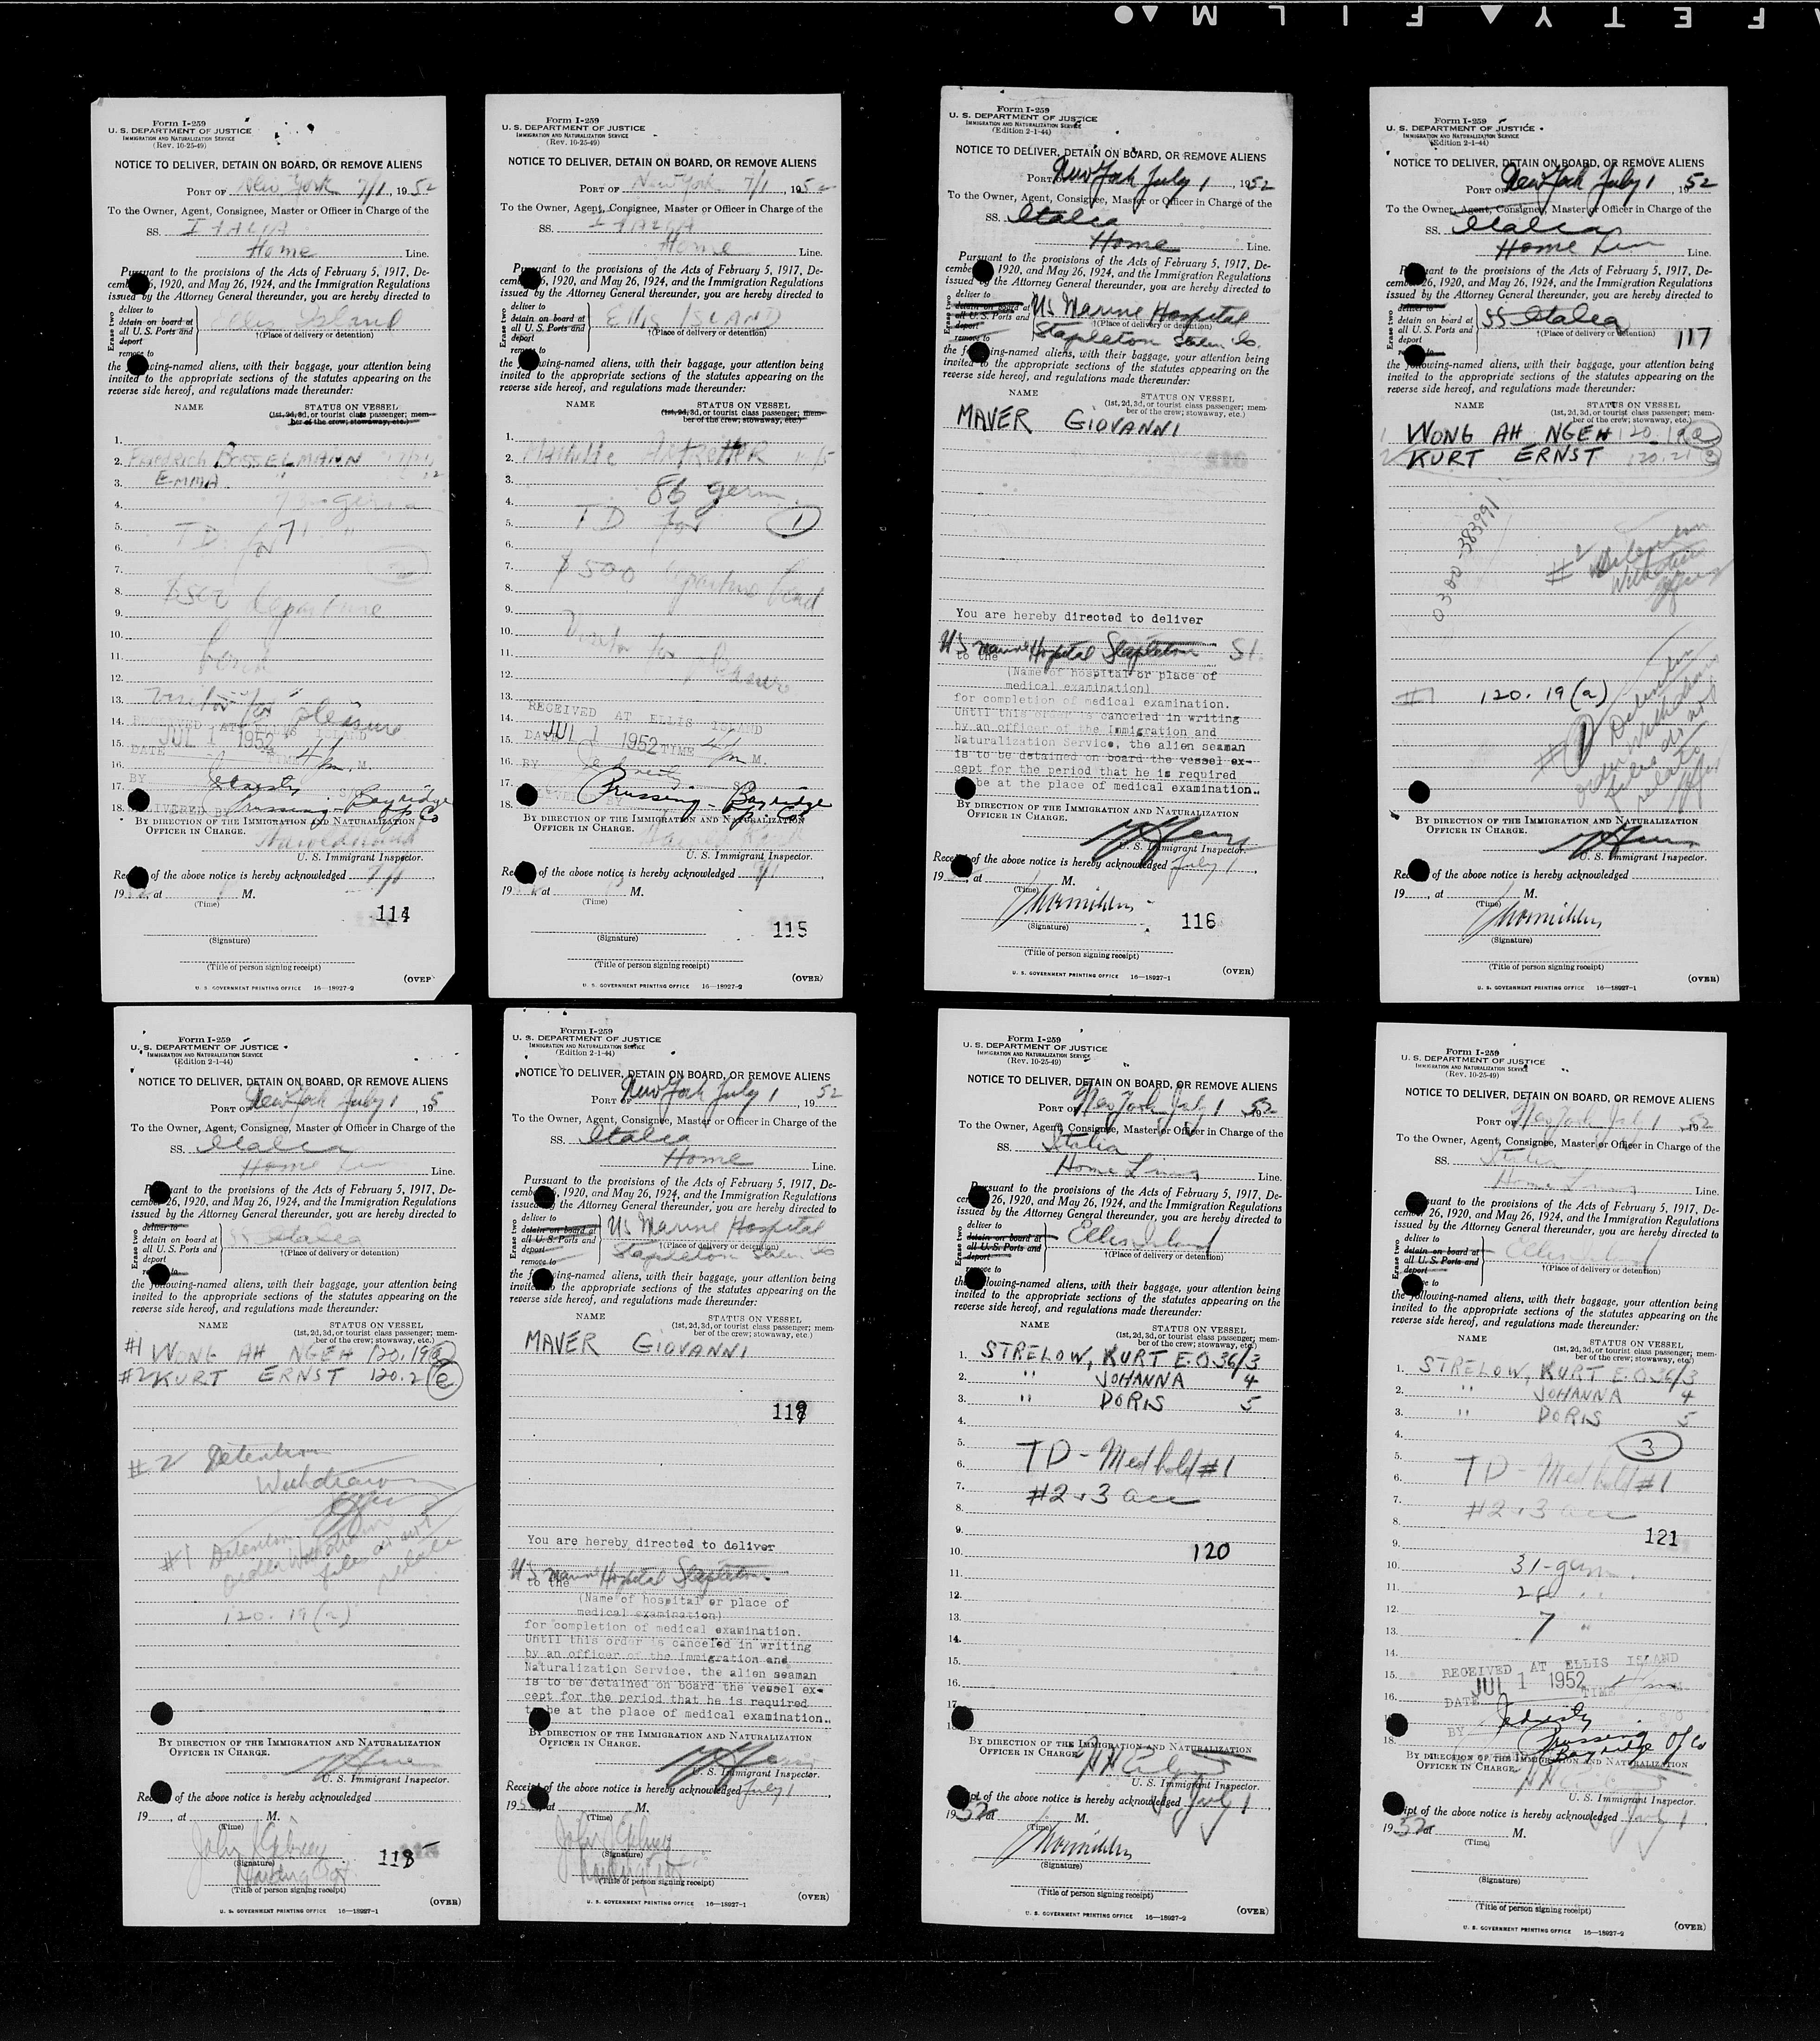 S A F E T Y ▲ F I L M ● ▲
Form I-259
U. S. DEPARTMENT OF JUSTICE
IMMIGRATION AND NATURALIZATION SERVICE
(Rev. 10-25-49)
NOTICE TO DELIVER, DETAIN ON BOARD, OR REMOVE ALIENS
PORT OF New York 7/1, 1952
To the Owner, Agent, Consignee, Master or Officer in Charge of the
SS. ITALIA
Home Line.
Pursuant to the provisions of the Acts of February 5, 1917, De-
cember 26, 1920, and May 26, 1924, and the Immigration Regulations
issued by the Attorney General thereunder, you are hereby directed to
Erase two
deliver to
detain on board at
all U. S. Ports and
deport
remove to
Ellis Island
†(Place of delivery or detention)
the following-named aliens, with their baggage, your attention being
invited to the appropriate sections of the statutes appearing on the
reverse side hereof, and regulations made thereunder:
NAME STATUS ON VESSEL
(1st, 2d, 3d, or tourist class passenger; mem-
ber of the crew; stowaway, etc.)
1.
2. Friedrich BOSSELMANN
3. EMMA "
4.
5. TD for
6.
7.
8. $500 departure
9.
10. bond
11.
12.
13. visitor for pleasure
14. RECEIVED AT ELLIS ISLAND
15. DATE JUL 1 1952 TIME 4 P.M.
16.
17. BY
18. DELIVERED BY Prussing - Bayridge Op Co
BY DIRECTION OF THE IMMIGRATION AND NATURALIZATION
OFFICER IN CHARGE.
U. S. Immigrant Inspector.
Receipt of the above notice is hereby acknowledged 7/1
19 , at M.
(Time)
114
(Signature)
(Title of person signing receipt)
(OVER)
U. S. GOVERNMENT PRINTING OFFICE 16—18927-2
Form I-259
U. S. DEPARTMENT OF JUSTICE
IMMIGRATION AND NATURALIZATION SERVICE
(Rev. 10-25-49)
NOTICE TO DELIVER, DETAIN ON BOARD, OR REMOVE ALIENS
PORT OF New York 7/1, 1952
To the Owner, Agent, Consignee, Master or Officer in Charge of the
SS. ITALIA
Home Line.
Pursuant to the provisions of the Acts of February 5, 1917, De-
cember 26, 1920, and May 26, 1924, and the Immigration Regulations
issued by the Attorney General thereunder, you are hereby directed to
Erase two
deliver to
detain on board at
all U. S. Ports and
deport
remove to
Ellis ISLAND
†(Place of delivery or detention)
the following-named aliens, with their baggage, your attention being
invited to the appropriate sections of the statutes appearing on the
reverse side hereof, and regulations made thereunder:
NAME STATUS ON VESSEL
(1st, 2d, 3d, or tourist class passenger; mem-
ber of the crew; stowaway, etc.)
1.
2. Mathilde
3. 86 germ.
4.
5. TD for 1
6.
7. $500 departure bond
8.
9.
10. Visitor for
11.
12. pleasure
13.
14. RECEIVED AT ELLIS ISLAND
15. DATE JUL 1 1952 TIME 4 P.M.
16. BY
17.
18. DELIVERED BY Prussing - Bayridge Op Co
BY DIRECTION OF THE IMMIGRATION AND NATURALIZATION
OFFICER IN CHARGE.
U. S. Immigrant Inspector.
Receipt of the above notice is hereby acknowledged 7/1
19 , at M.
(Time)
115
(Signature)
(Title of person signing receipt)
(OVER)
U. S. GOVERNMENT PRINTING OFFICE 16—18927-2
Form I-259
U. S. DEPARTMENT OF JUSTICE
IMMIGRATION AND NATURALIZATION SERVICE
(Edition 2-1-44)
NOTICE TO DELIVER, DETAIN ON BOARD, OR REMOVE ALIENS
PORT OF New York July 1, 1952
To the Owner, Agent, Consignee, Master or Officer in Charge of the
SS. Italia
Home Line.
Pursuant to the provisions of the Acts of February 5, 1917, De-
cember 26, 1920, and May 26, 1924, and the Immigration Regulations
issued by the Attorney General thereunder, you are hereby directed to
Erase two
deliver to
detain on board at
all U. S. Ports and
deport
remove to
US Marine Hospital
†(Place of delivery or detention)
Stapleton Staten Is.
the following-named aliens, with their baggage, your attention being
invited to the appropriate sections of the statutes appearing on the
reverse side hereof, and regulations made thereunder:
NAME STATUS ON VESSEL
(1st, 2d, 3d, or tourist class passenger; mem-
ber of the crew; stowaway, etc.)
MAVER GIOVANNI
You are hereby directed to deliver
to the US Marine Hospital Stapleton SI.
(Name of hospital or place of
medical examination)
for completion of medical examination.
Until this order is canceled in writing
by an officer of the Immigration and
Naturalization Service, the alien seaman
is to be detained on board the vessel ex-
cept for the period that he is required
to be at the place of medical examination.
BY DIRECTION OF THE IMMIGRATION AND NATURALIZATION
OFFICER IN CHARGE.
U. S. Immigrant Inspector.
Receipt of the above notice is hereby acknowledged July 1,
19 , at M.
(Time)
(Signature)
116
(Title of person signing receipt)
(OVER)
U. S. GOVERNMENT PRINTING OFFICE 16—18927-1
Form I-259
U. S. DEPARTMENT OF JUSTICE
IMMIGRATION AND NATURALIZATION SERVICE
(Edition 2-1-44)
NOTICE TO DELIVER, DETAIN ON BOARD, OR REMOVE ALIENS
PORT OF New York July 1, 1952
To the Owner, Agent, Consignee, Master or Officer in Charge of the
SS. Italia
Home Line.
Pursuant to the provisions of the Acts of February 5, 1917, De-
cember 26, 1920, and May 26, 1924, and the Immigration Regulations
issued by the Attorney General thereunder, you are hereby directed to
Erase two
deliver to
detain on board at
all U. S. Ports and
deport
remove to
SS Italia
†(Place of delivery or detention)
117
the following-named aliens, with their baggage, your attention being
invited to the appropriate sections of the statutes appearing on the
reverse side hereof, and regulations made thereunder:
NAME STATUS ON VESSEL
(1st, 2d, 3d, or tourist class passenger; mem-
ber of the crew; stowaway, etc.)
1 WONG AH NGEH 120.19(a)
2 KURT ERNST 120.21
0300-383991
#2 Detention
Withdrawn
#1 120.19(a)
#1 Detention
order withdrawn
files do not
relate
BY DIRECTION OF THE IMMIGRATION AND NATURALIZATION
OFFICER IN CHARGE.
U. S. Immigrant Inspector.
Receipt of the above notice is hereby acknowledged
19 , at M.
(Time)
(Signature)
(Title of person signing receipt)
(OVER)
U. S. GOVERNMENT PRINTING OFFICE 16—18927-1
Form I-259
U. S. DEPARTMENT OF JUSTICE
IMMIGRATION AND NATURALIZATION SERVICE
(Edition 2-1-44)
NOTICE TO DELIVER, DETAIN ON BOARD, OR REMOVE ALIENS
PORT OF New York July 1, 195
To the Owner, Agent, Consignee, Master or Officer in Charge of the
SS. Italia
Home Line.
Pursuant to the provisions of the Acts of February 5, 1917, De-
cember 26, 1920, and May 26, 1924, and the Immigration Regulations
issued by the Attorney General thereunder, you are hereby directed to
Erase two
deliver to
detain on board at
all U. S. Ports and
deport
remove to
SS Italia
†(Place of delivery or detention)
the following-named aliens, with their baggage, your attention being
invited to the appropriate sections of the statutes appearing on the
reverse side hereof, and regulations made thereunder:
NAME STATUS ON VESSEL
(1st, 2d, 3d, or tourist class passenger; mem-
ber of the crew; stowaway, etc.)
#1 WONG AH NGEH 120.19(a)
#2 KURT ERNST 120.2(e)
#2 Detention
Withdrawn
#1 Detention
order Withdrawn
files do not
relate
120.19(a)
BY DIRECTION OF THE IMMIGRATION AND NATURALIZATION
OFFICER IN CHARGE.
U. S. Immigrant Inspector.
Receipt of the above notice is hereby acknowledged
19 , at M.
(Time)
John
(Signature)
118
(Title of person signing receipt)
(OVER)
U. S. GOVERNMENT PRINTING OFFICE 16—18927-1
Form I-259
U. S. DEPARTMENT OF JUSTICE
IMMIGRATION AND NATURALIZATION SERVICE
(Edition 2-1-44)
NOTICE TO DELIVER, DETAIN ON BOARD, OR REMOVE ALIENS
PORT OF New York July 1, 1952
To the Owner, Agent, Consignee, Master or Officer in Charge of the
SS. Italia
Home Line.
Pursuant to the provisions of the Acts of February 5, 1917, De-
cember 26, 1920, and May 26, 1924, and the Immigration Regulations
issued by the Attorney General thereunder, you are hereby directed to
Erase two
deliver to
detain on board at
all U. S. Ports and
deport
remove to
US Marine Hospital
†(Place of delivery or detention)
Stapleton Staten Is
the following-named aliens, with their baggage, your attention being
invited to the appropriate sections of the statutes appearing on the
reverse side hereof, and regulations made thereunder:
NAME STATUS ON VESSEL
(1st, 2d, 3d, or tourist class passenger; mem-
ber of the crew; stowaway, etc.)
MAVER GIOVANNI
119
You are hereby directed to deliver
to the US Marine Hospital Stapleton
(Name of hospital or place of
medical examination)
for completion of medical examination.
Until this order is canceled in writing
by an officer of the Immigration and
Naturalization Service, the alien seaman
is to be detained on board the vessel ex-
cept for the period that he is required
to be at the place of medical examination.
BY DIRECTION OF THE IMMIGRATION AND NATURALIZATION
OFFICER IN CHARGE.
U. S. Immigrant Inspector.
Receipt of the above notice is hereby acknowledged July 1,
195 , at M.
(Time)
John
(Signature)
(Title of person signing receipt)
(OVER)
U. S. GOVERNMENT PRINTING OFFICE 16—18927-1
Form I-259
U. S. DEPARTMENT OF JUSTICE
IMMIGRATION AND NATURALIZATION SERVICE
(Rev. 10-25-49)
NOTICE TO DELIVER, DETAIN ON BOARD, OR REMOVE ALIENS
PORT OF New York July 1, 1952
To the Owner, Agent, Consignee, Master or Officer in Charge of the
SS. Italia
Home Lines Line.
Pursuant to the provisions of the Acts of February 5, 1917, De-
cember 26, 1920, and May 26, 1924, and the Immigration Regulations
issued by the Attorney General thereunder, you are hereby directed to
Erase two
deliver to
detain on board at
all U. S. Ports and
deport
remove to
Ellis Island
†(Place of delivery or detention)
the following-named aliens, with their baggage, your attention being
invited to the appropriate sections of the statutes appearing on the
reverse side hereof, and regulations made thereunder:
NAME STATUS ON VESSEL
(1st, 2d, 3d, or tourist class passenger; mem-
ber of the crew; stowaway, etc.)
1. STRELOW, KURT E.O 36/3
2. " JOHANNA 4
3. " DORIS 5
4.
5.
6. TD - Med hold #1
7. #2+3 acc
8.
9.
10. 120
11.
12.
13.
14.
15.
16.
17.
18.
BY DIRECTION OF THE IMMIGRATION AND NATURALIZATION
OFFICER IN CHARGE.
U. S. Immigrant Inspector.
Receipt of the above notice is hereby acknowledged July 1,
1952 at M.
(Time)
(Signature)
(Title of person signing receipt)
(OVER)
U. S. GOVERNMENT PRINTING OFFICE 16—18927-2
Form I-259
U. S. DEPARTMENT OF JUSTICE
IMMIGRATION AND NATURALIZATION SERVICE
(Rev. 10-25-49)
NOTICE TO DELIVER, DETAIN ON BOARD, OR REMOVE ALIENS
PORT OF New York July 1, 1952
To the Owner, Agent, Consignee, Master or Officer in Charge of the
SS. Italia
Home Lines Line.
Pursuant to the provisions of the Acts of February 5, 1917, De-
cember 26, 1920, and May 26, 1924, and the Immigration Regulations
issued by the Attorney General thereunder, you are hereby directed to
Erase two
deliver to
detain on board at
all U. S. Ports and
deport
remove to
Ellis Island
†(Place of delivery or detention)
the following-named aliens, with their baggage, your attention being
invited to the appropriate sections of the statutes appearing on the
reverse side hereof, and regulations made thereunder:
NAME STATUS ON VESSEL
(1st, 2d, 3d, or tourist class passenger; mem-
ber of the crew; stowaway, etc.)
1. STRELOW, KURT E.O 36/3
2. " JOHANNA 4
3. " DORIS 5
4.
5. 3
6. TD - Med hold #1
7. #2+3 acc
8.
9. 121
10. 31 - germ.
11. 28 "
12.
13. 7 "
14.
15. RECEIVED AT ELLIS ISLAND
16. DATE JUL 1 1952 TIME M.
17. BY
18. Prussing Bayridge Op Co
BY DIRECTION OF THE IMMIGRATION AND NATURALIZATION
OFFICER IN CHARGE.
U. S. Immigrant Inspector.
Receipt of the above notice is hereby acknowledged July 1
1952 at M.
(Time)
(Signature)
(Title of person signing receipt)
(OVER)
U. S. GOVERNMENT PRINTING OFFICE 16—18927-2